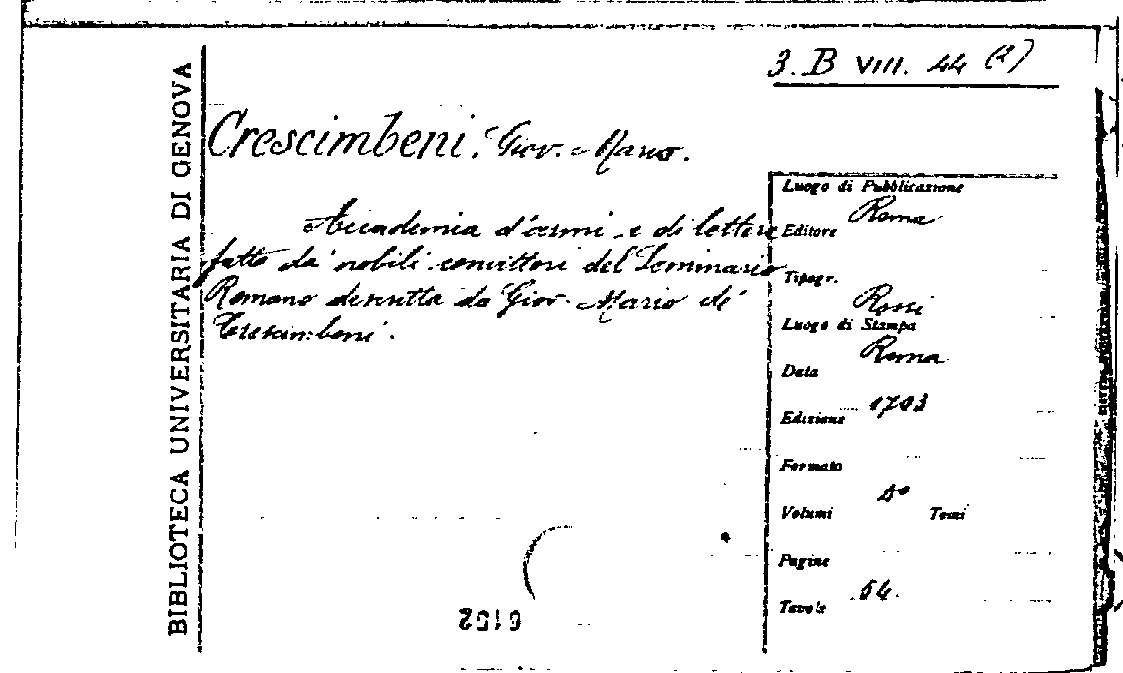 BIBLIOTECA UNIVERSITARIA DI GENOVA
3. B VIII. 44 (2)
Crescimbeni. Giov. Mario.
Accademia d'armi e di lettere
fatta da' nobili convittori del Seminario
Romano descritta da Giov. Mario de'
Crescimbeni.
Luogo di Pubblicazione
Roma
Editore
Tipogr.
Rossi
Luogo di Stampa
Roma
Data
1703
Edizione
Formato
4°
Volumi Tomi
Pagine
54.
Tavole
6152